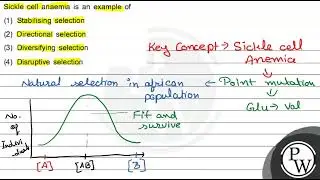 Sickle cell anaemia is an example of
(1) Stabilising selection
(2) Directional selection
(3) Diversifying selection
(4) Disruptive selection
Key Concept → Sickle cell
Anemia
Natural selection in african ← Point mutation
population
Glu → Val
No.
of
Indivi
dual
Fit and
survive
[A] [AB] [B]
PW